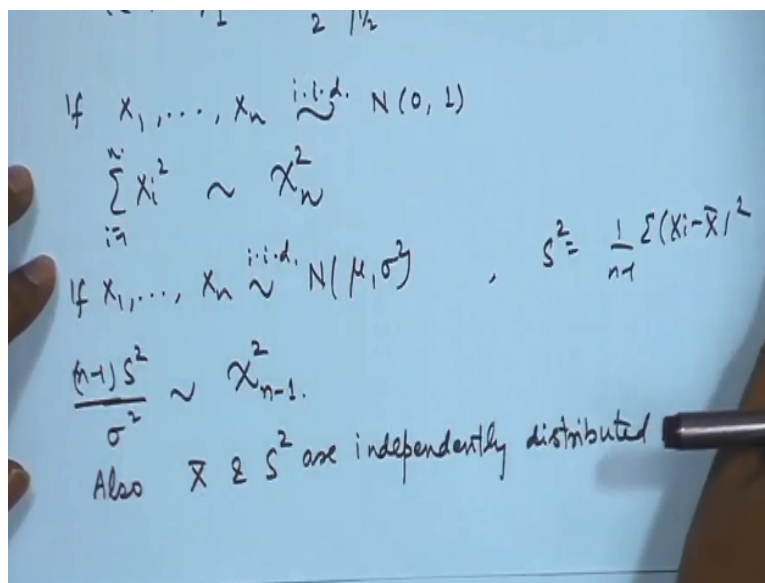 2 √½
If X₁, ..., Xₙ i.i.d. ~ N(0, 1)
n Σ i=1 Xi² ~ χ²ₙ
If X₁, ..., Xₙ i.i.d. ~ N(μ, σ²) , S² = 1/(n-1) Σ(Xi-X̄)²
(n-1)S²/σ² ~ χ²ₙ₋₁.
Also X̄ & S² are independently distributed